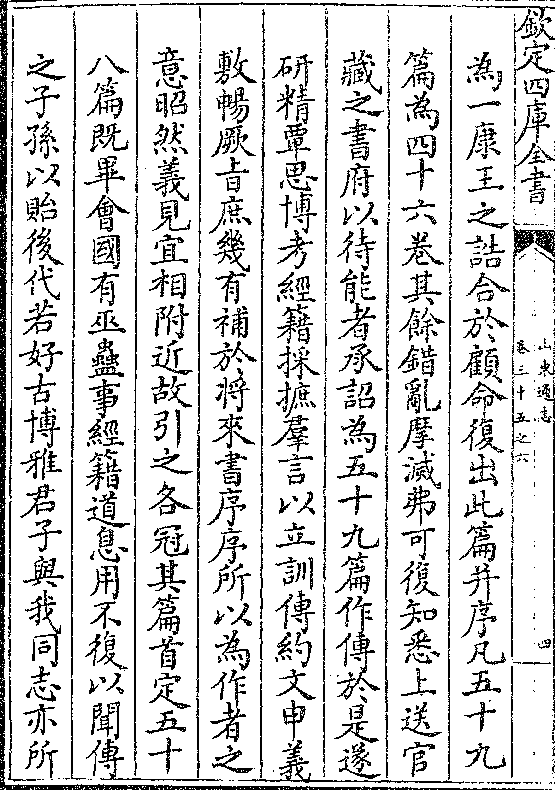 欽定四庫全書
山東通志
卷三十五之六
四
為一康王之誥合於顧命復出此篇并序凡五十九
篇為四十六卷其餘錯亂摩滅弗可復知悉上送官
藏之書府以待能者承詔為五十九篇作傳於是遂
研精覃思博考經籍採摭羣言以立訓傳約文申義
敷暢厥旨庶幾有補於將來書序序所以為作者之
意昭然義見宜相附近故引之各冠其篇首定五十
八篇既畢會國有巫蠱事經籍道息用不復以聞傳
之子孫以貽後代若好古博雅君子與我同志亦所